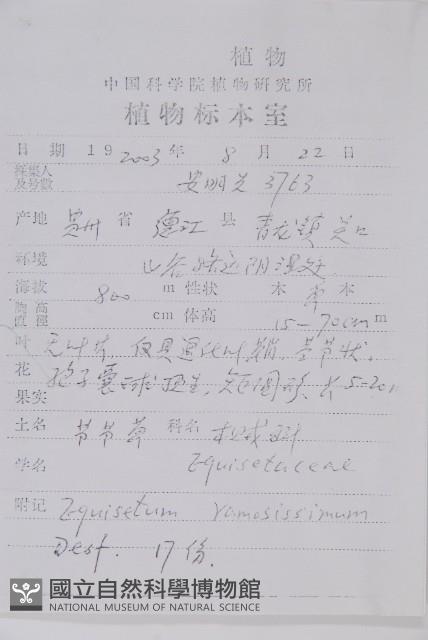 植物
中国科学院植物研究所
植物标本室
日期 19 2003年 8月 22日
采集人及号数 安明态 3763
产地 贵州 省 德江 县 青龙镇
环境 山谷 阴湿处
海拔 800 m 性状 木 草 本
胸高直径 cm 体高 15-70cm m
叶 无叶片,仅具 叶鞘,茎节状,
花 孢子囊球顶生,矩圆形,长 5-20
果实
土名 节节草 科名 木贼科
学名 Equisetaceae
附记 Equisetum ramosissimum
Desf. 17份.
國立自然科學博物館
NATIONAL MUSEUM OF NATURAL SCIENCE